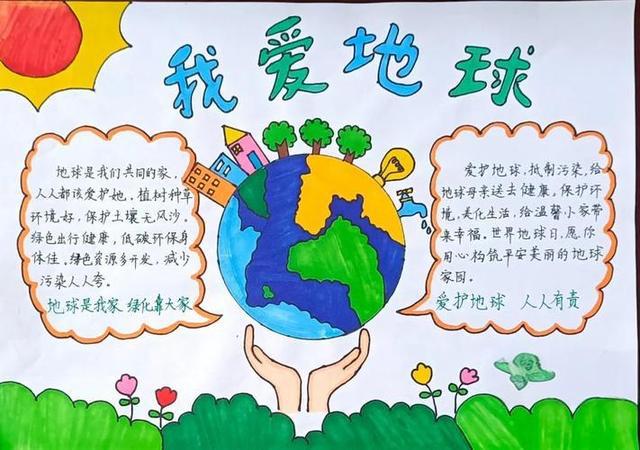 我爱地球
地球是我们共同的家，
人人都该爱护她。植树种草
环境好，保护土壤无风沙。
绿色出行健康，低碳环保身
体佳。绿色资源多开发，减少
污染人人夸。
地球是我家 绿化靠大家
爱护地球，抵制污染，给
地球母亲送去健康。保护环
境，美化生活，给温馨小家带
来幸福。世界地球日，愿你
用心构筑平安美丽的地球
家园。
爱护地球 人人有责